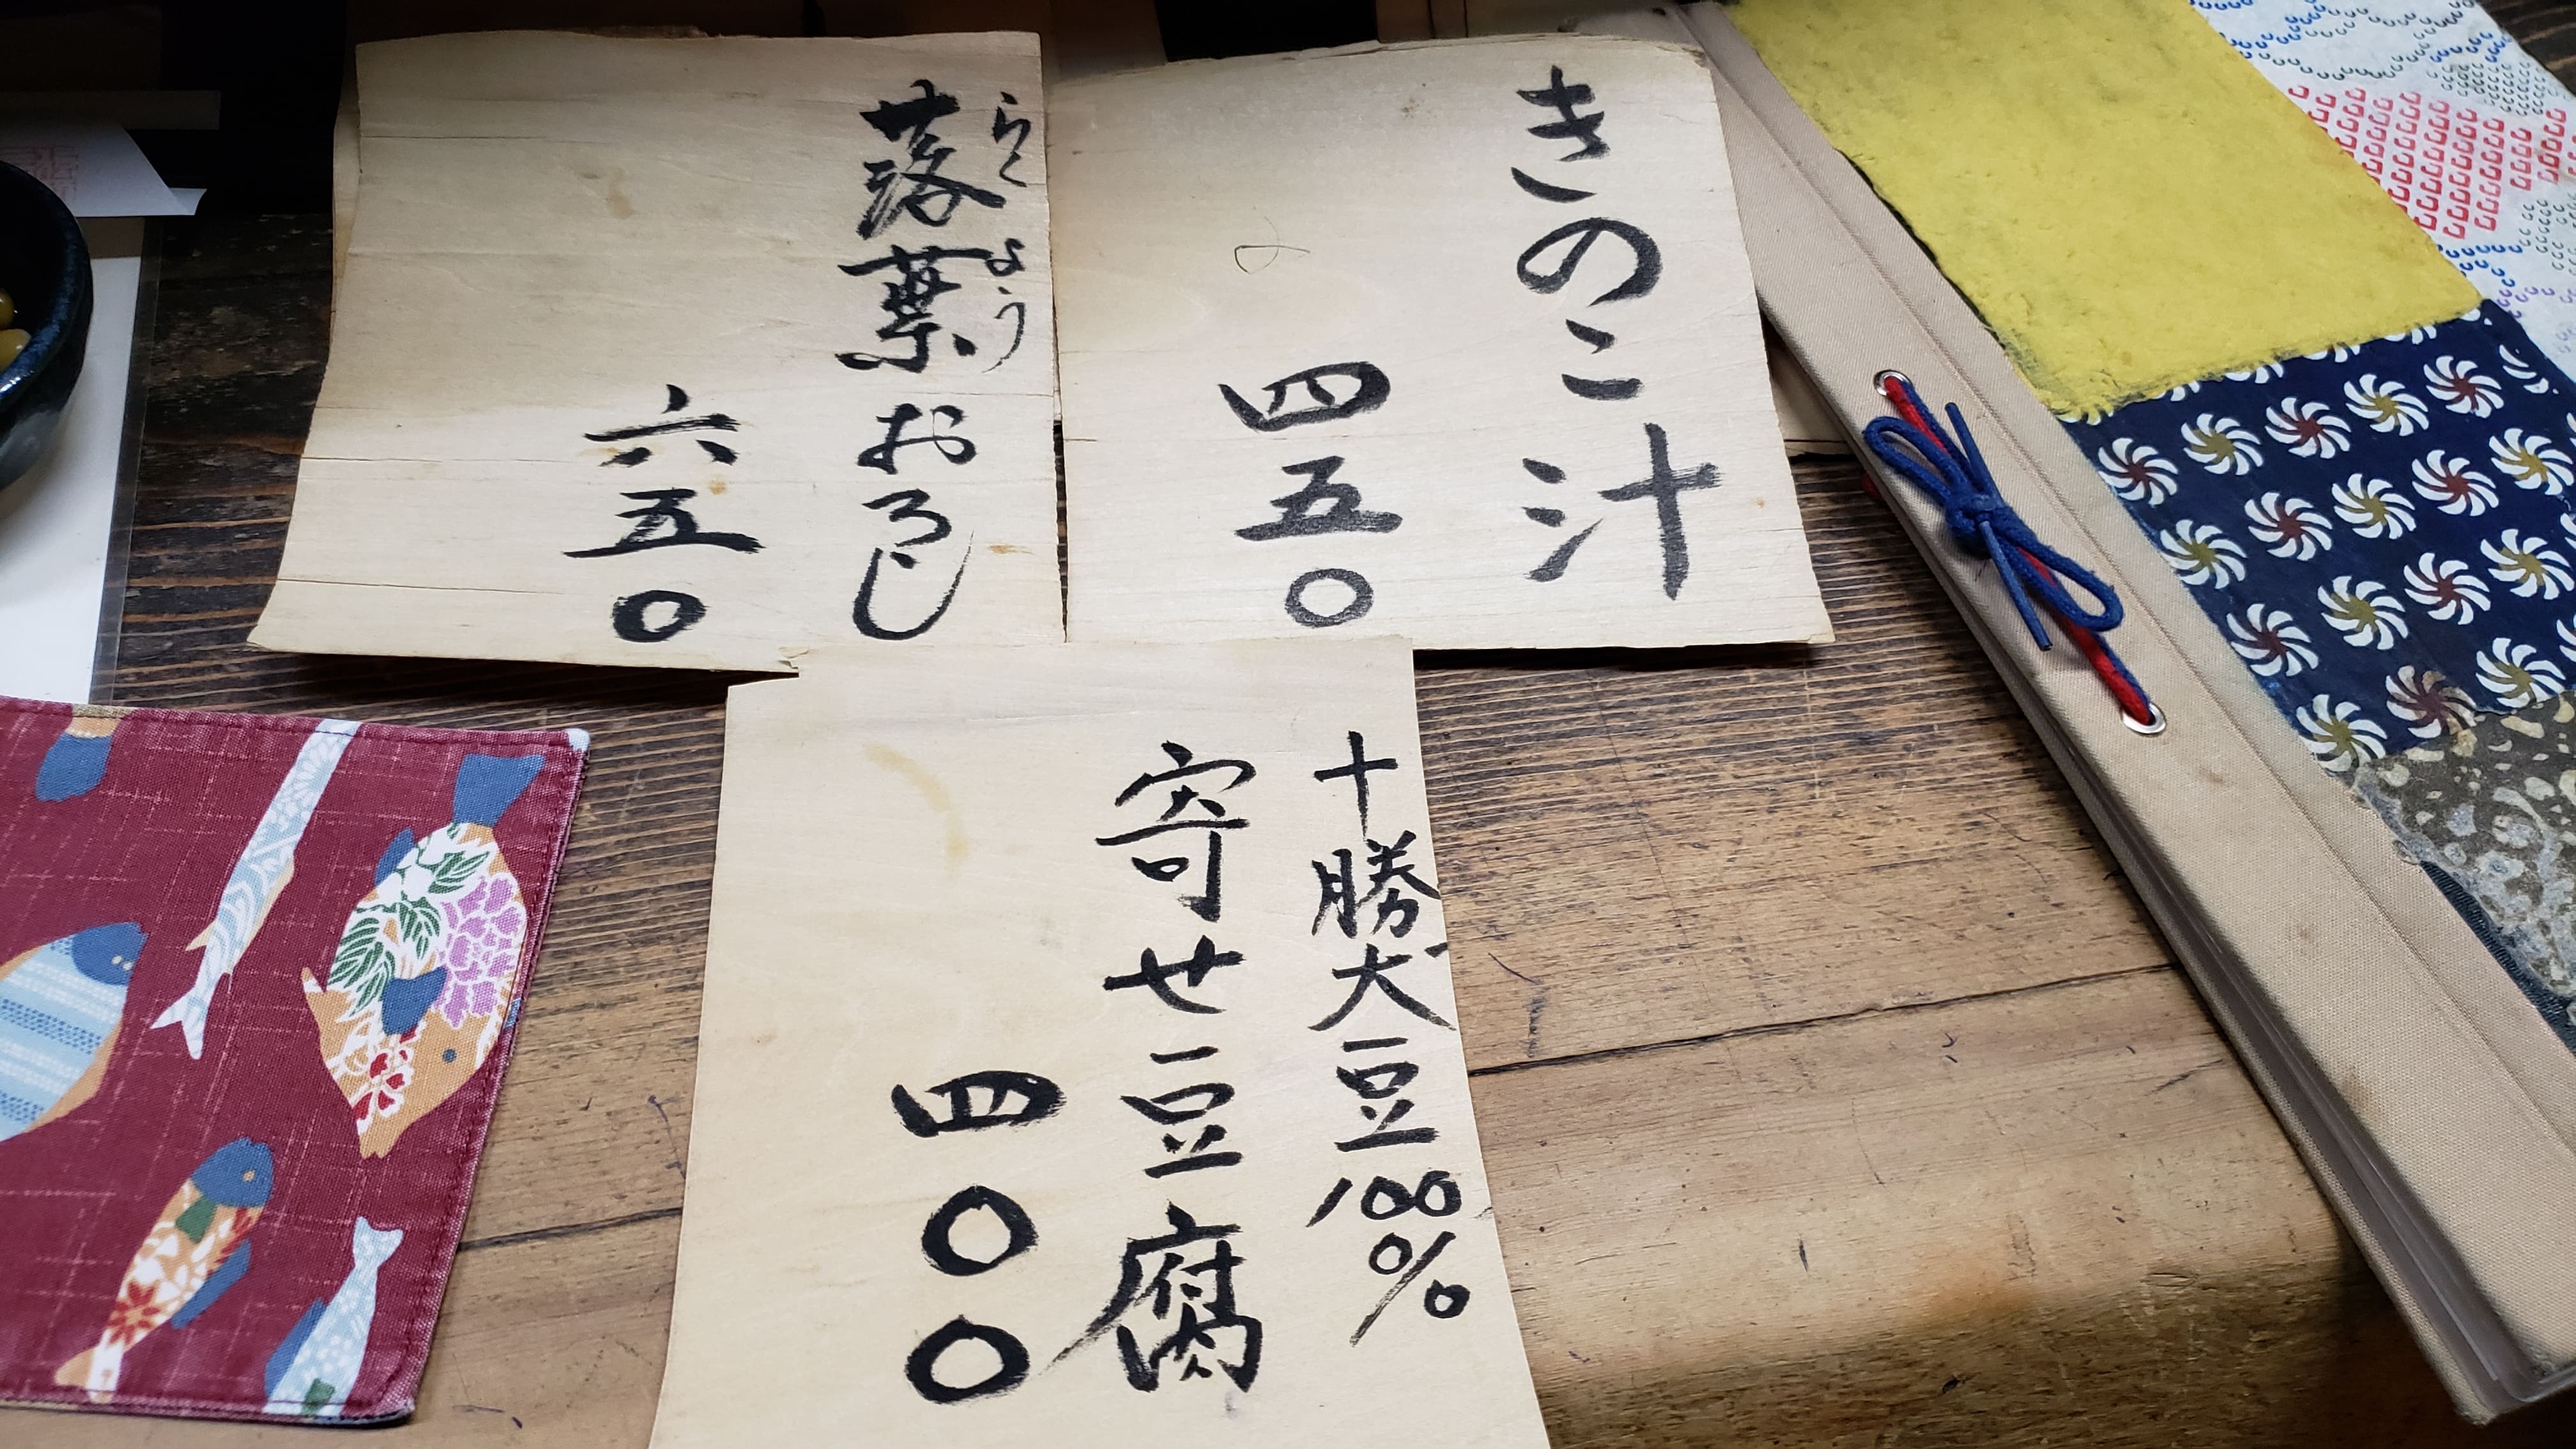 きのこ汁
四五〇
落葉おろし
らくよう
六五〇
十勝大豆100%
寄せ豆腐
四〇〇